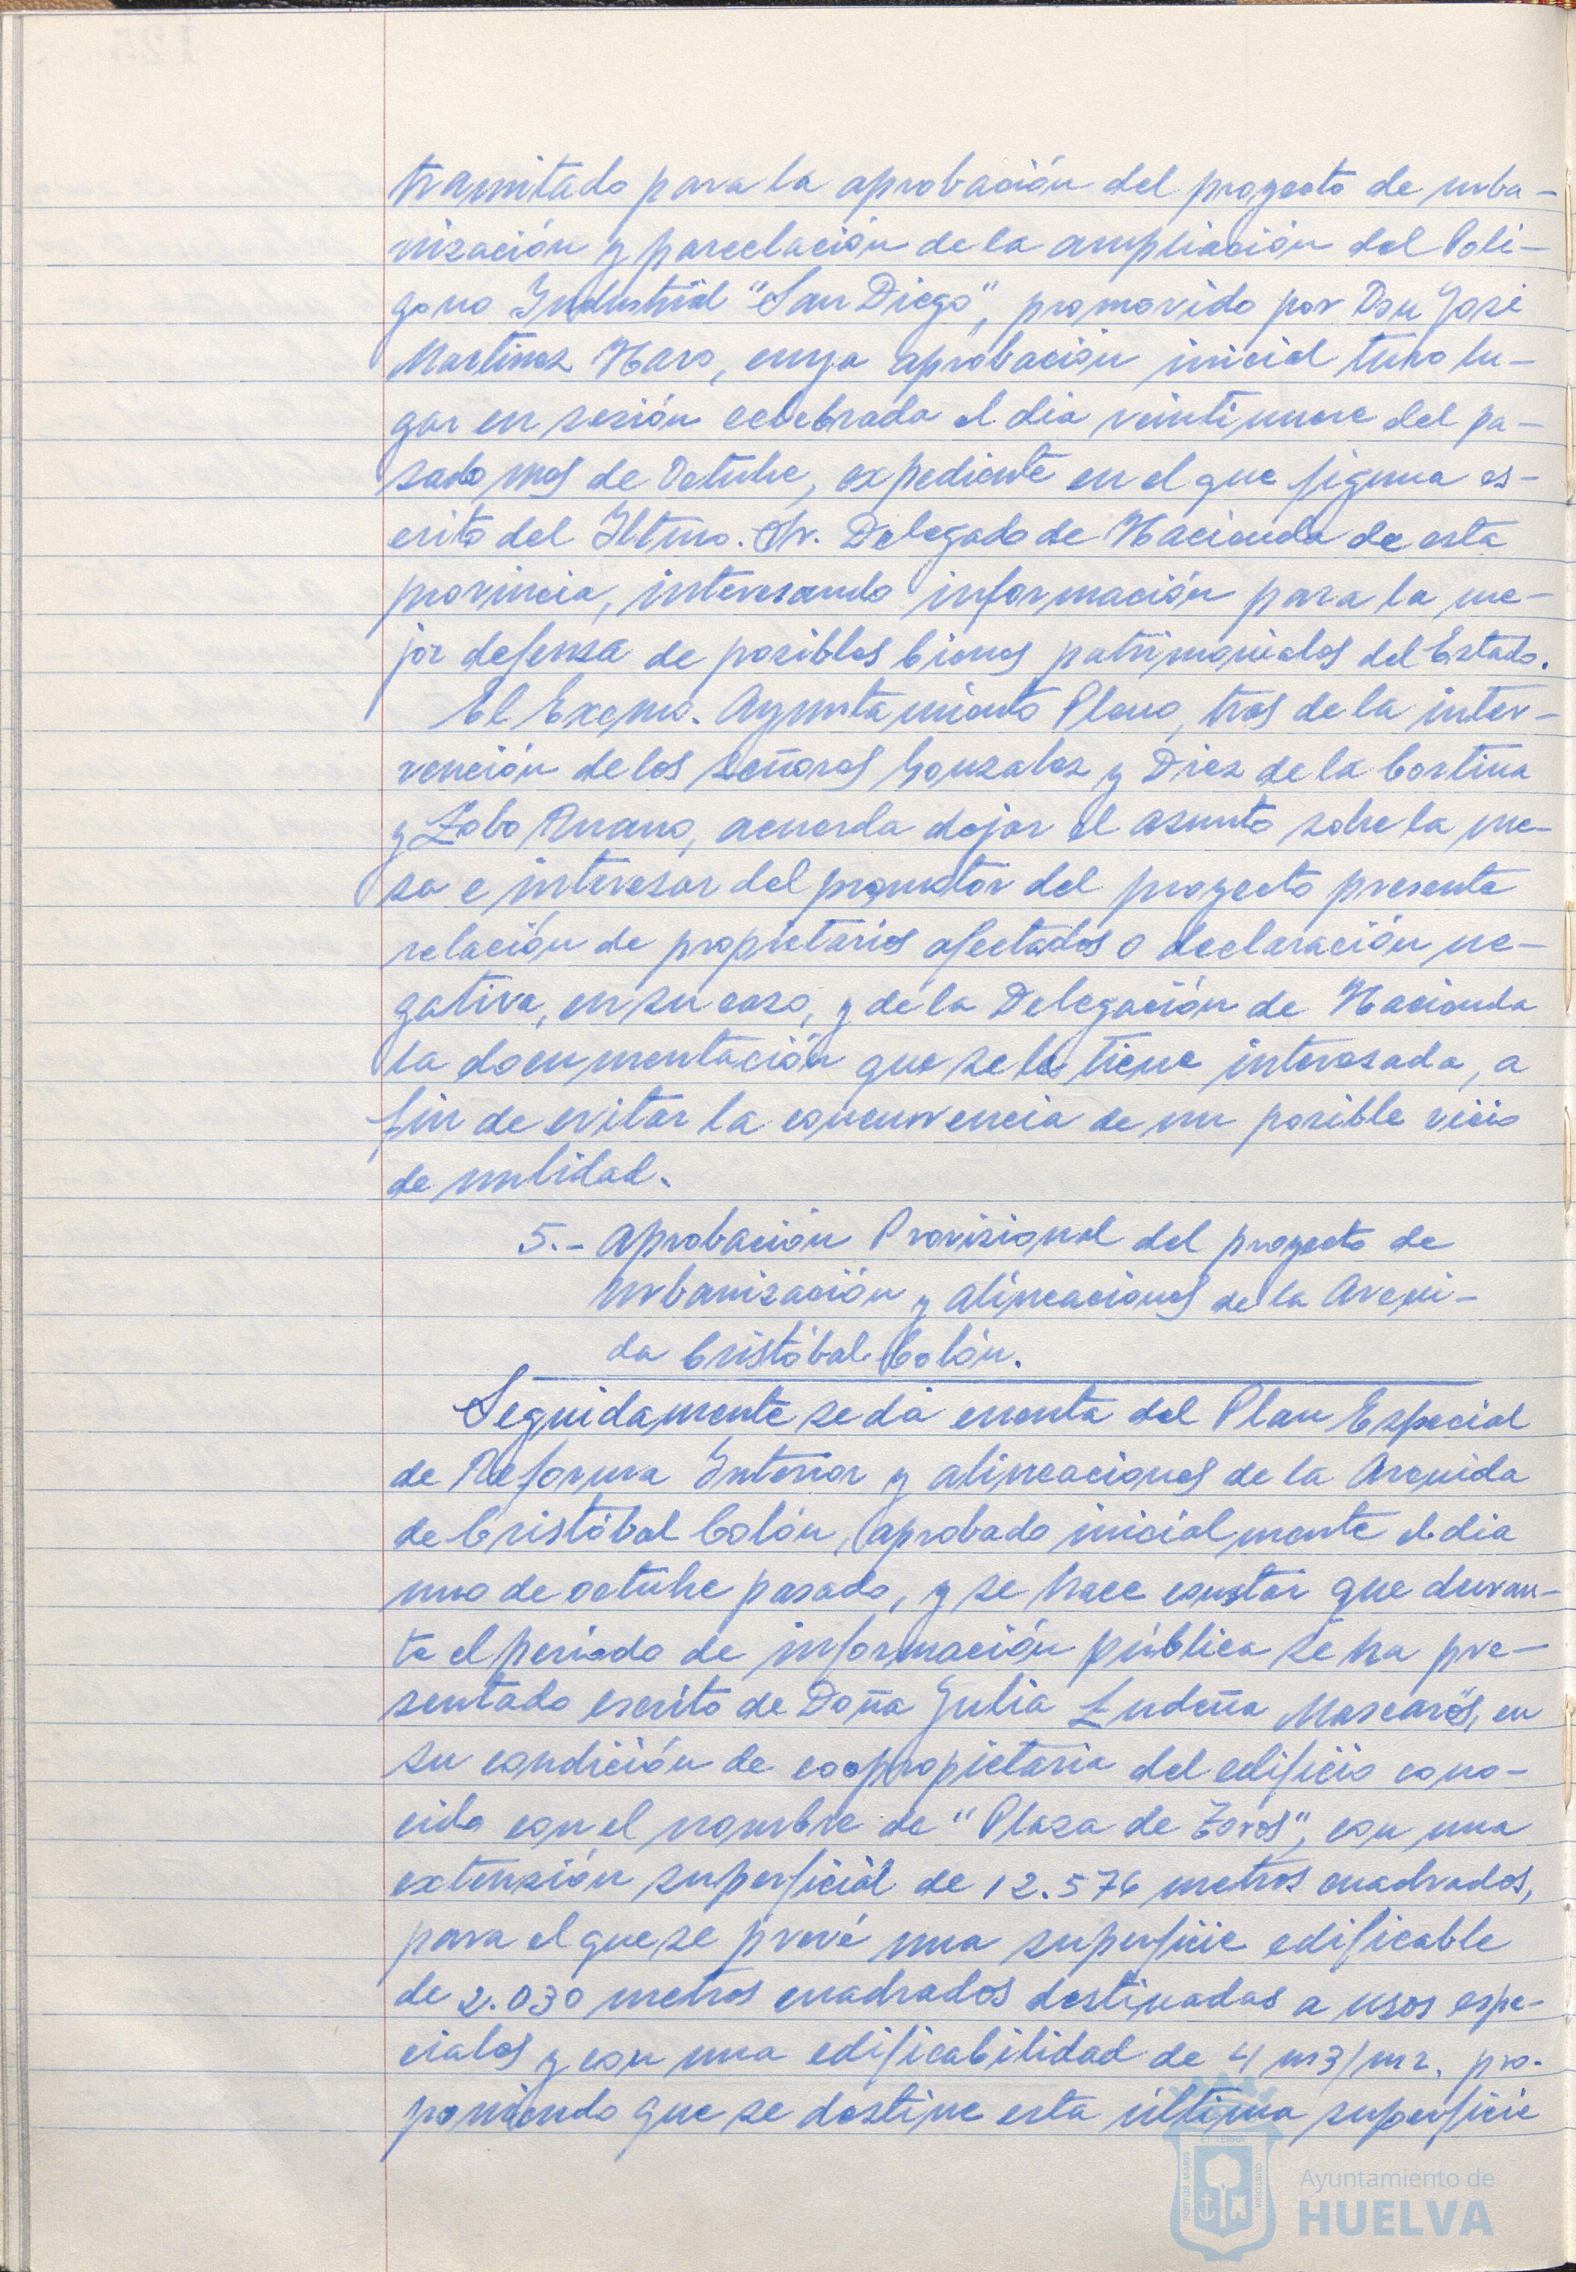 tramitado para la aprobación del proyecto de urba-
nización y parcelación de la ampliación del Polí-
gono Industrial "San Diego", promovido por Don José
Martínez Haro, cuya aprobación inicial tuvo lu-
gar en sesión celebrada el día veintinueve del pa-
sado mes de Octubre, expediente en el que figura es-
crito del Iltmo. Sr. Delegado de Hacienda de esta
provincia, interesando información para la me-
jor defensa de posibles bienes patrimoniales del Estado.
El Excmo. Ayuntamiento Pleno, tras de la inter-
vención de los señores González y Díez de la Cortina
y Lobo Ruano, acuerda dejar el asunto sobre la me-
sa e interesar del promotor del proyecto presente
relación de propietarios afectados o declaración ne-
gativa, en su caso, y de la Delegación de Hacienda
la documentación que se le tiene interesada, a
fin de evitar la concurrencia de un posible vicio
de nulidad.
5.- Aprobación Provisional del proyecto de
urbanización y alineaciones de la Aveni-
da Cristóbal Colón.
Seguidamente se dá cuenta del Plan Especial
de Reforma Interior y alineaciones de la Avenida
de Cristóbal Colón, aprobado inicialmente el dia
uno de octubre pasado, y se hace constar que duran-
te el periodo de información pública se ha pre-
sentado escrito de Doña Julia Ludeña Mascarós, en
su condición de coopropietaria del edificio cono-
cido con el nombre de "Plaza de Toros", con una
extensión superficial de 12.576 metros cuadrados,
para el que se prevé una superficie edificable
de 2.030 metros cuadrados destinadas a usos espe-
ciales y con una edificabilidad de 4 m3/m2. pro-
poniendo que se destine esta última superficie
Ayuntamiento de
HUELVA